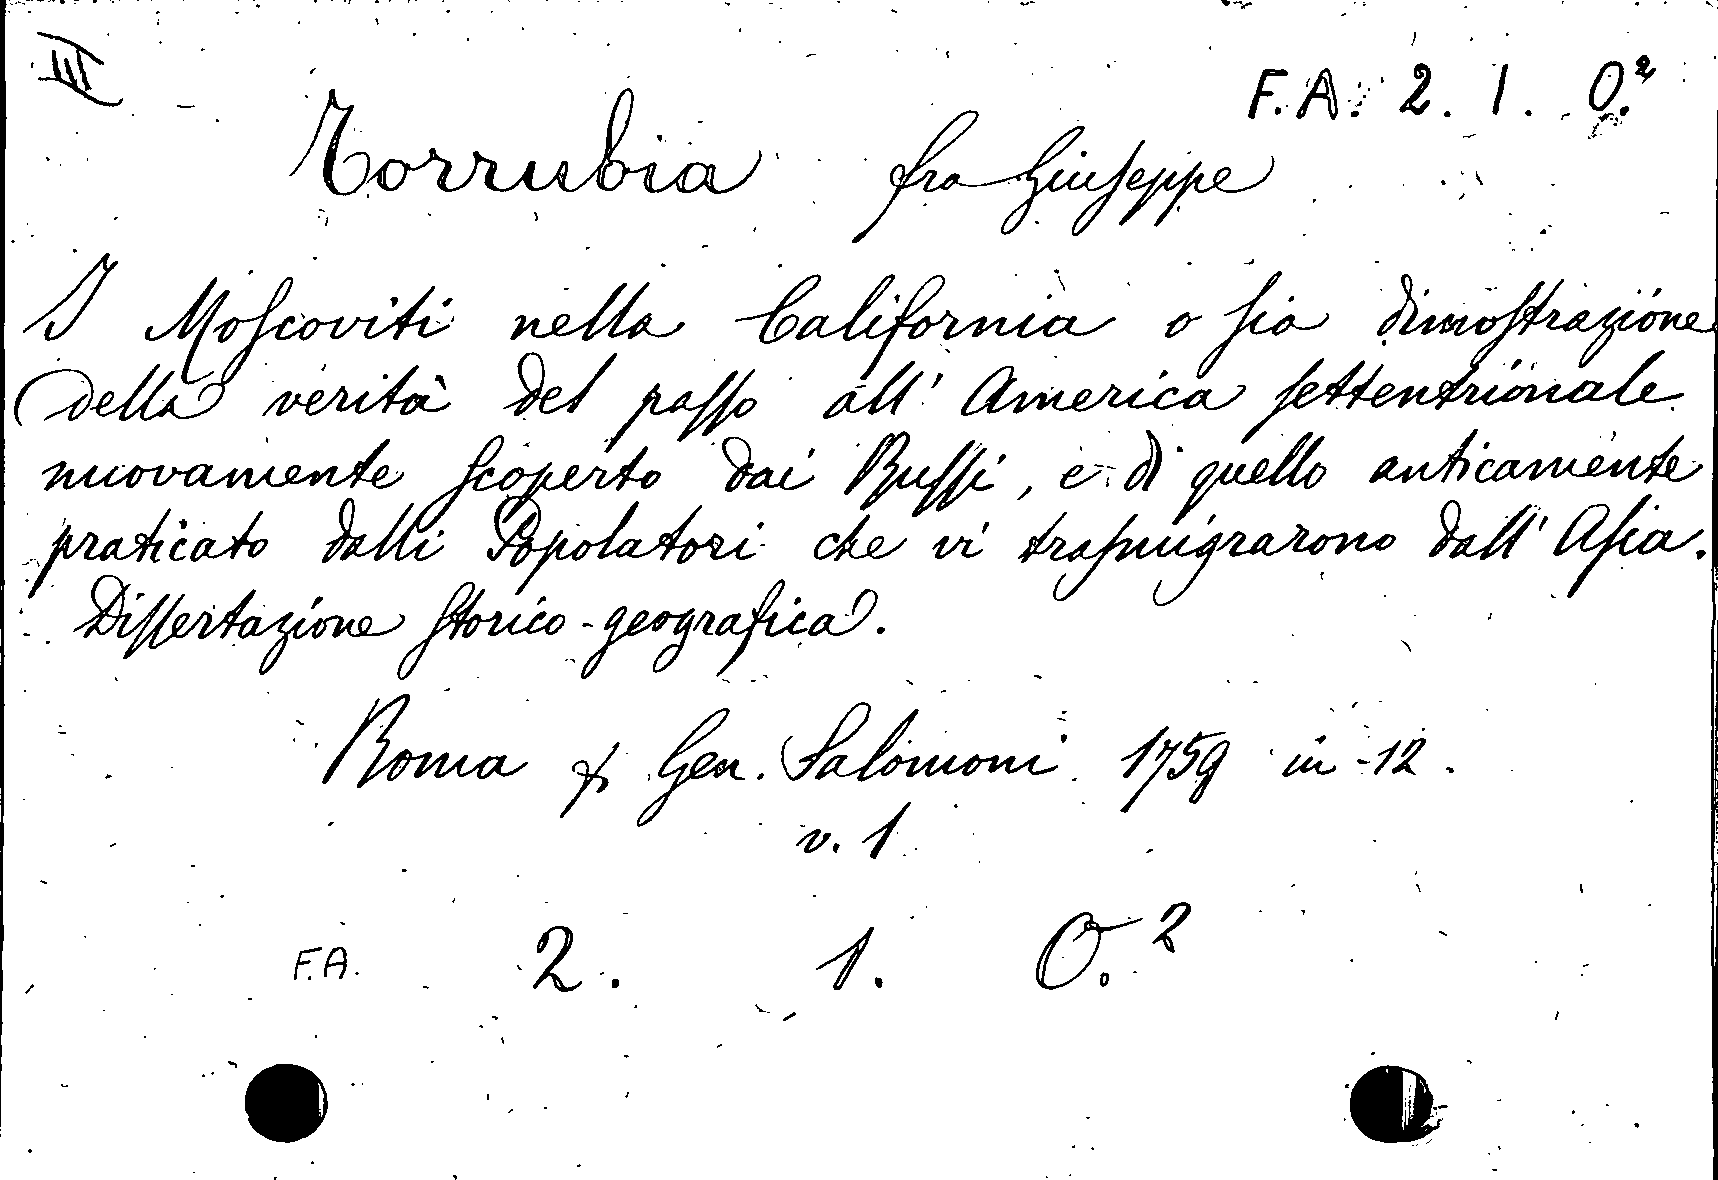 III
F.A. 2. 1. O.²
Torrubia fra Giuseppe
I Moscoviti nella California o sia dimostrazione
della verità del passo all' America settentrionale
nuovamente scoperto dai Russi, e di quello anticamente
praticato dalli Popolatori che vi trasmigrarono dall' Asia.
Dissertazione storico-geografica.
Roma Gen. Salomoni 1759 in-12.
v. 1
F.A. 2. 1. O.²